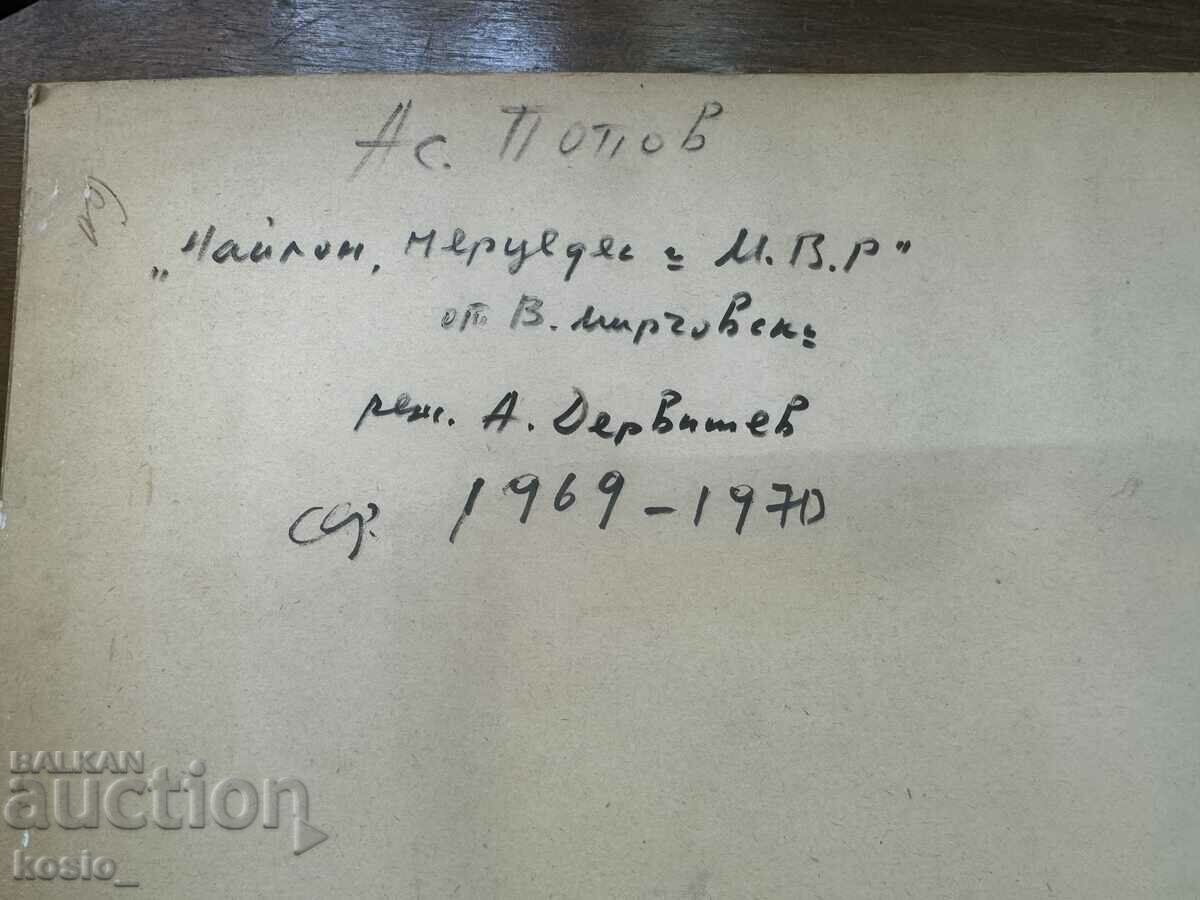 Ас. Попов
"Найлон, мерцедес и М.В.Р"
от В. Мирчовски
реж. А. Дервишев
сф. 1969-1970
BALKAN
auction
kosio_